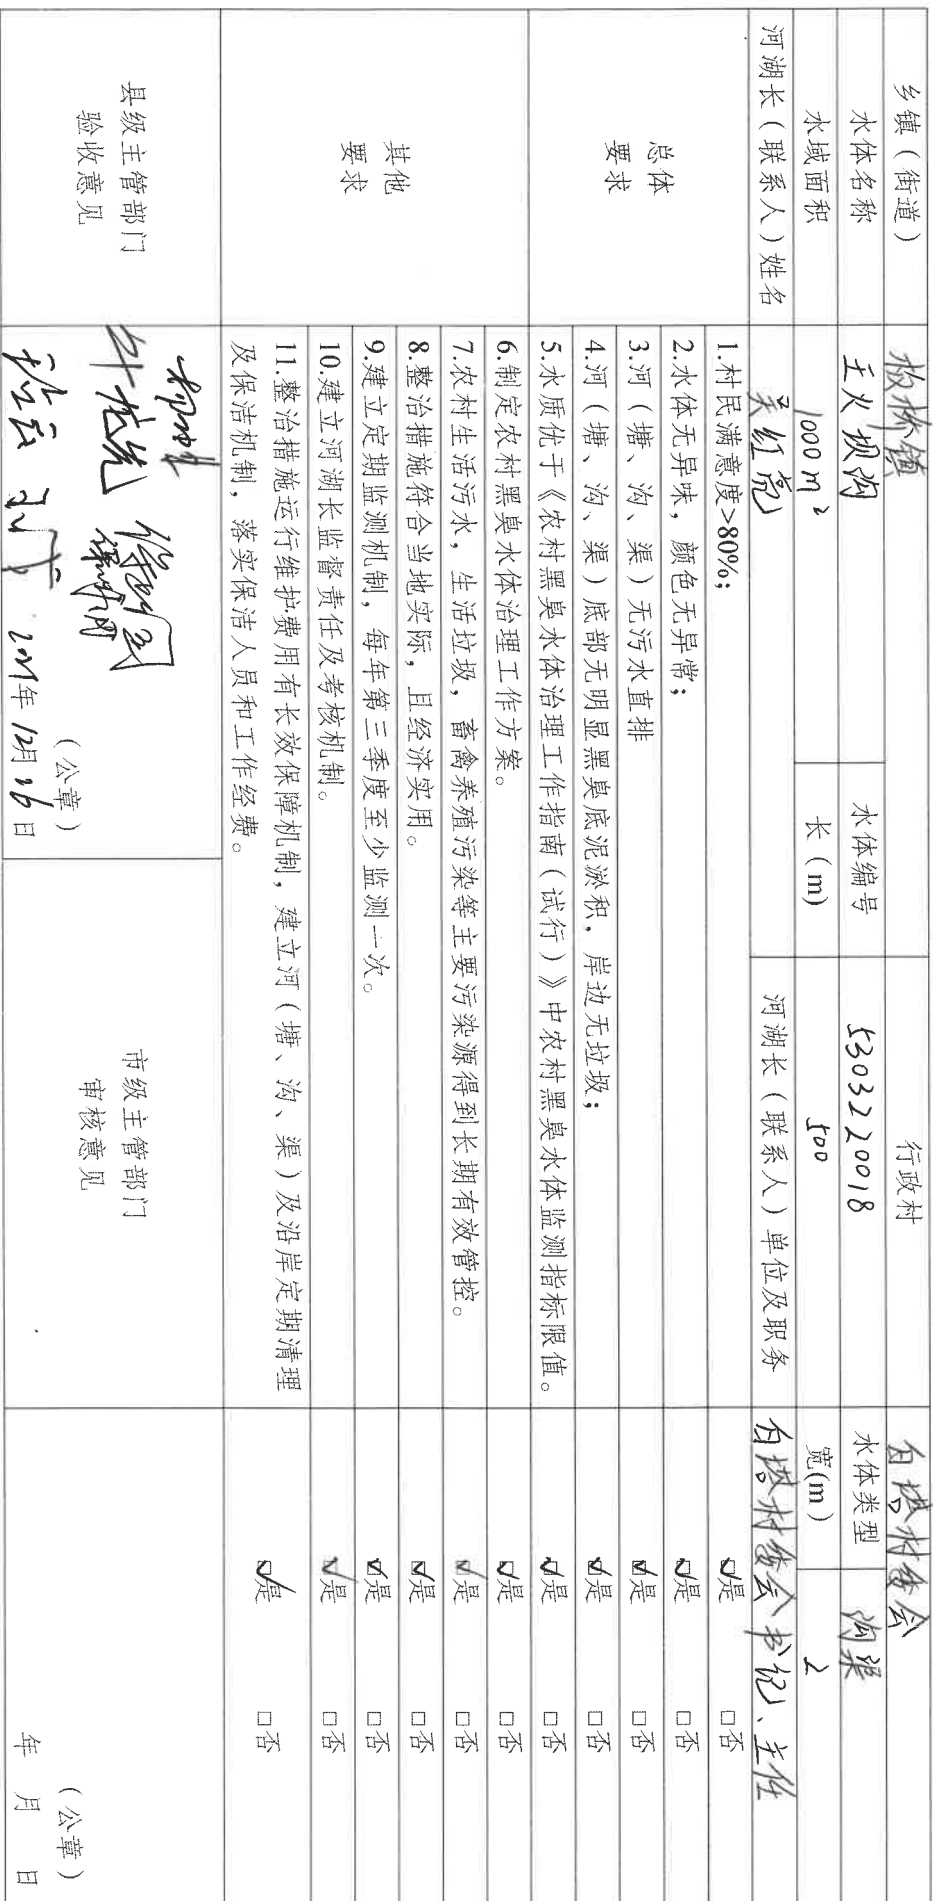 乡镇（街道） 板桥镇 行政村 白塔村委会
水体名称 主火坝沟 水体编号 5303220018 水体类型 沟渠
水域面积 1000m² 长（m） 500 宽(m) 2
河湖长（联系人）姓名 吴红亮 河湖长（联系人）单位及职务 白塔村委会书记、主任
总体
要求
1.村民满意度>80%； ☑是 □否
2.水体无异味，颜色无异常； ☑是 □否
3.河（塘、沟、渠）无污水直排 ☑是 □否
4.河（塘、沟、渠）底部无明显黑臭底泥淤积，岸边无垃圾； ☑是 □否
5.水质优于《农村黑臭水体治理工作指南（试行）》中农村黑臭水体监测指标限值。 ☑是 □否
其他
要求
6.制定农村黑臭水体治理工作方案。 ☑是 □否
7.农村生活污水，生活垃圾，畜禽养殖污染等主要污染源得到长期有效管控。 ☑是 □否
8.整治措施符合当地实际，且经济实用。 ☑是 □否
9.建立定期监测机制，每年第三季度至少监测一次。 ☑是 □否
10.建立河湖长监督责任及考核机制。 ☑是 □否
11.整治措施运行维护费用有长效保障机制，建立河（塘、沟、渠）及沿岸定期清理
及保洁机制，落实保洁人员和工作经费。 ☑是 □否
县级主管部门
验收意见
（公章）
2021年12月26日
市级主管部门
审核意见
（公章）
年 月 日